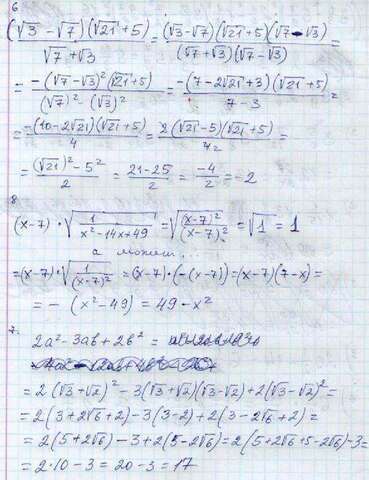 6
(√3 - √7)(√21+5) / (√7+√3) = (√3-√7)(√21+5)(√7-√3) / (√7+√3)(√7-√3)
= -(√7-√3)²(√21+5) / (√7)² - (√3)² = -(7-2√21+3)(√21+5) / 7-3 =
= -(10-2√21)(√21+5) / 4 = 2(√21-5)(√21+5) / 4 2 =
= (√21)² - 5² / 2 = 21-25 / 2 = -4 / 2 = -2
8
(x-7)·√(1 / x²-14x+49) = √((x-7)² / (x-7)²) = √1 = 1
а может...
= (x-7)·√(1 / (x-7)²) = (x-7)·(-(x-7)) = (x-7)(7-x) =
= - (x²-49) = 49-x²
7.
2a²-3ab+2b² =
= 2(√3+√2)² - 3(√3+√2)(√3-√2)+2(√3-√2)² =
= 2(3+2√6+2) - 3(3-2) + 2(3-2√6+2) =
= 2(5+2√6) - 3+2(5-2√6) = 2(5+2√6+5-2√6)-3=
= 2·10-3 = 20-3 = 17